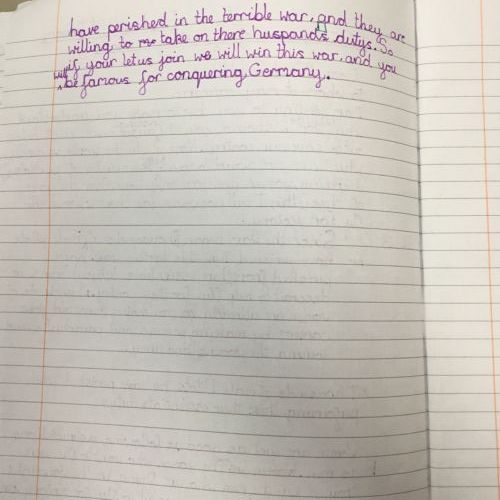 have perished in the terrible war, and they are
willing to take on there huspand's dutys. So
if your let us join we will win this war, and you
will be famous for conquering Germany.